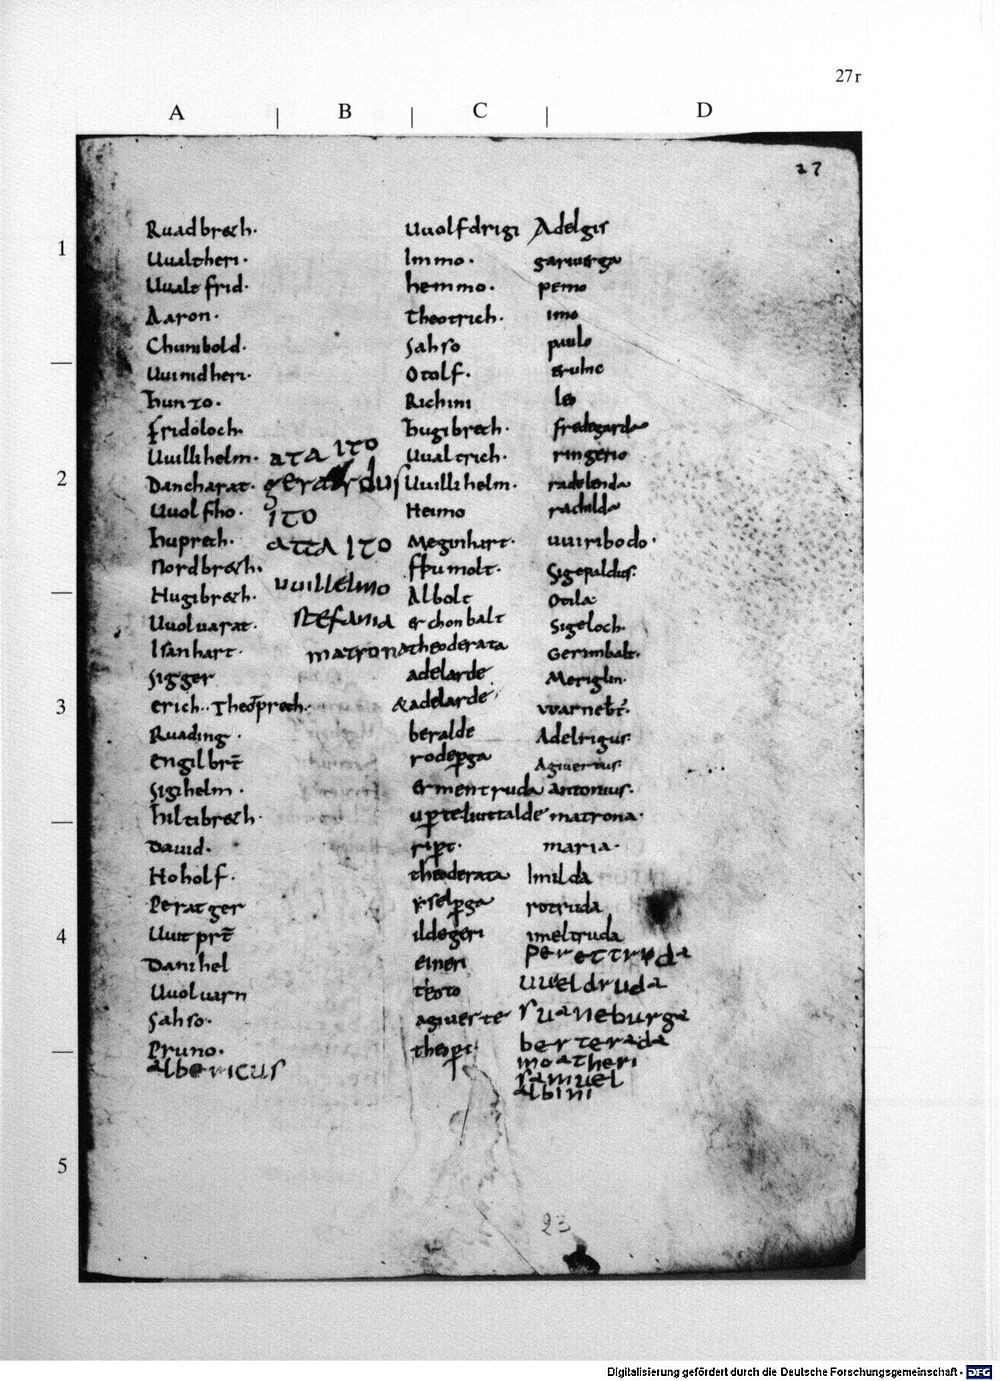 27r
A | B | C | D
27
1
2
3
4
5
Ruadbreth.
Uualtheri.
Uualtfrid.
Aaron.
Chunibold.
Uuinidheri.
hunzo.
fridoloch.
Uuillihelm.
Dancharat.
Uuolfho.
huprecth.
Nordbreth.
Hugibreth.
Uuoluarat.
Isanhart.
Sigger
erich.. Theop̄reth.
Ruading.
engilbrt̄
Sigihelm.
hiltibreth.
Dauid.
Hoholf.
Peratger
Uuitprt̄
Danihel
Uuoluarn
Sahso.
Pruno.
albericus
ATA ITO
gerardus
ITO
ATTA ITO
uuillelmo
stefania
matrona
Uuolfdrigi
Immo.
hemmo.
Theotrich.
Sahso
Otolf.
Richini
hugibreth.
Uualtrich.
Uuillihelm.
Heimo
Meginhart.
Albolt
erchonbalt
theoderata
adelarde
&adelarde
beralde
rodeꝑga
ermentruda
theoderata
ildegeri
eineri
teoto
agiuerte
Adelgis
pemo
imo
paulo
leo
fredegarda
ringerio
radelenda
rachilda
uuiribodo.
Sigepaldus.
Otila.
Sigeloch.
Gerimbalt.
Meriglin.
Adelrigus.
Agiuertus.
antonius.
matrona.
maria.
Imilda
rotruda
imeltruda
perettruda
uueldruda
suaneburga
berterada
moatheri
samuel
albini
23
Digitalisierung gefördert durch die Deutsche Forschungsgemeinschaft - DFG